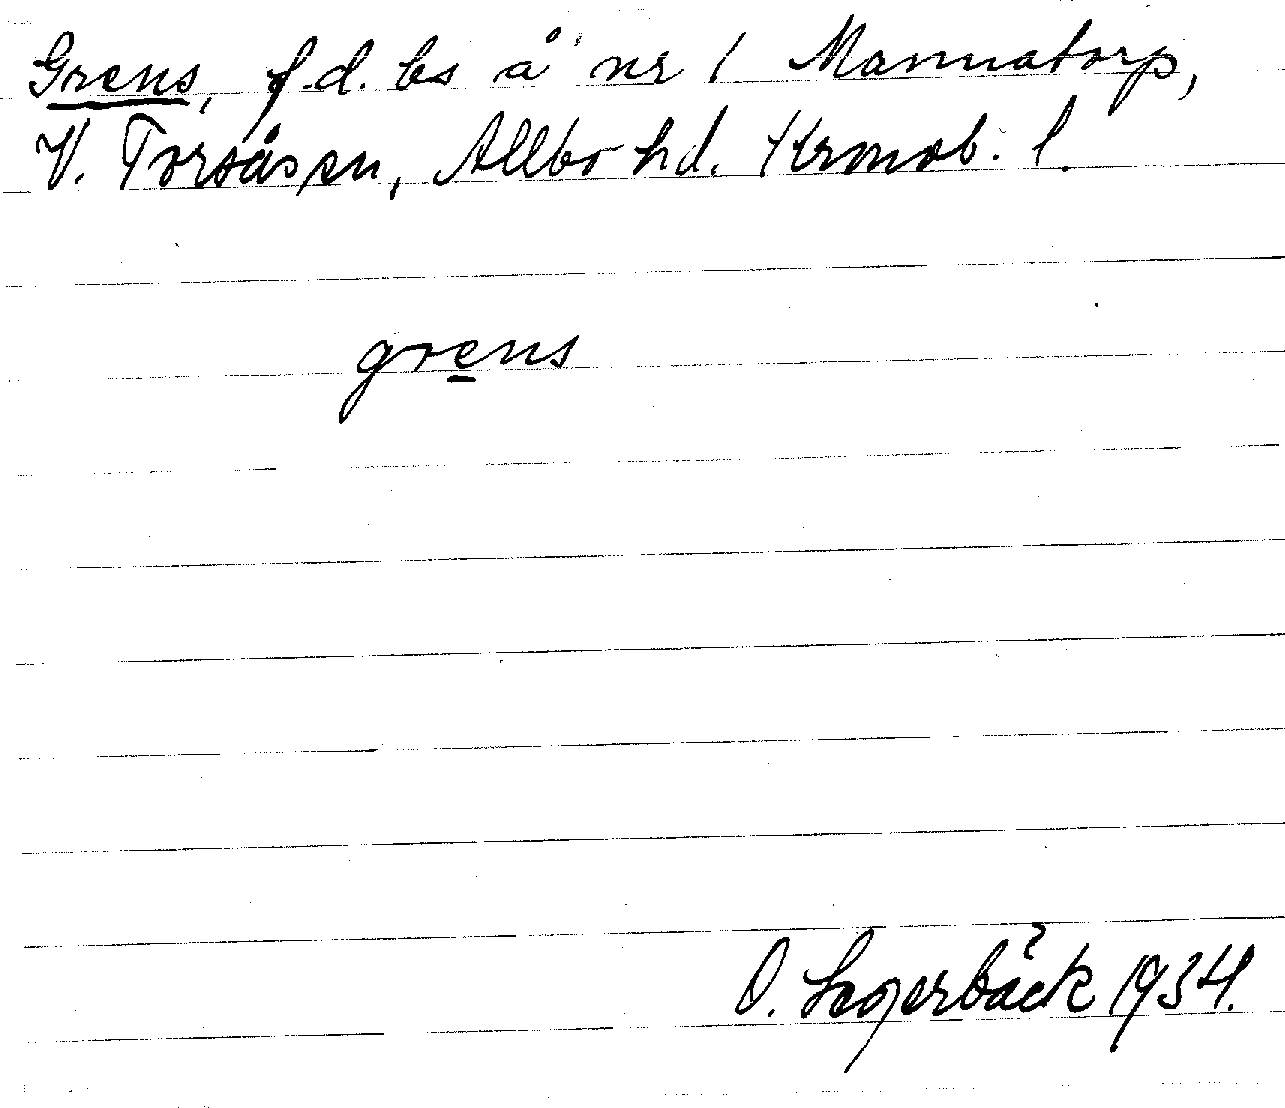 Grens, f.d. bs å nr 1 Mannatorp,
V. Torsås sn, Allbo hd. Kronob. l.
grens
O. Lagerbäck 1934.